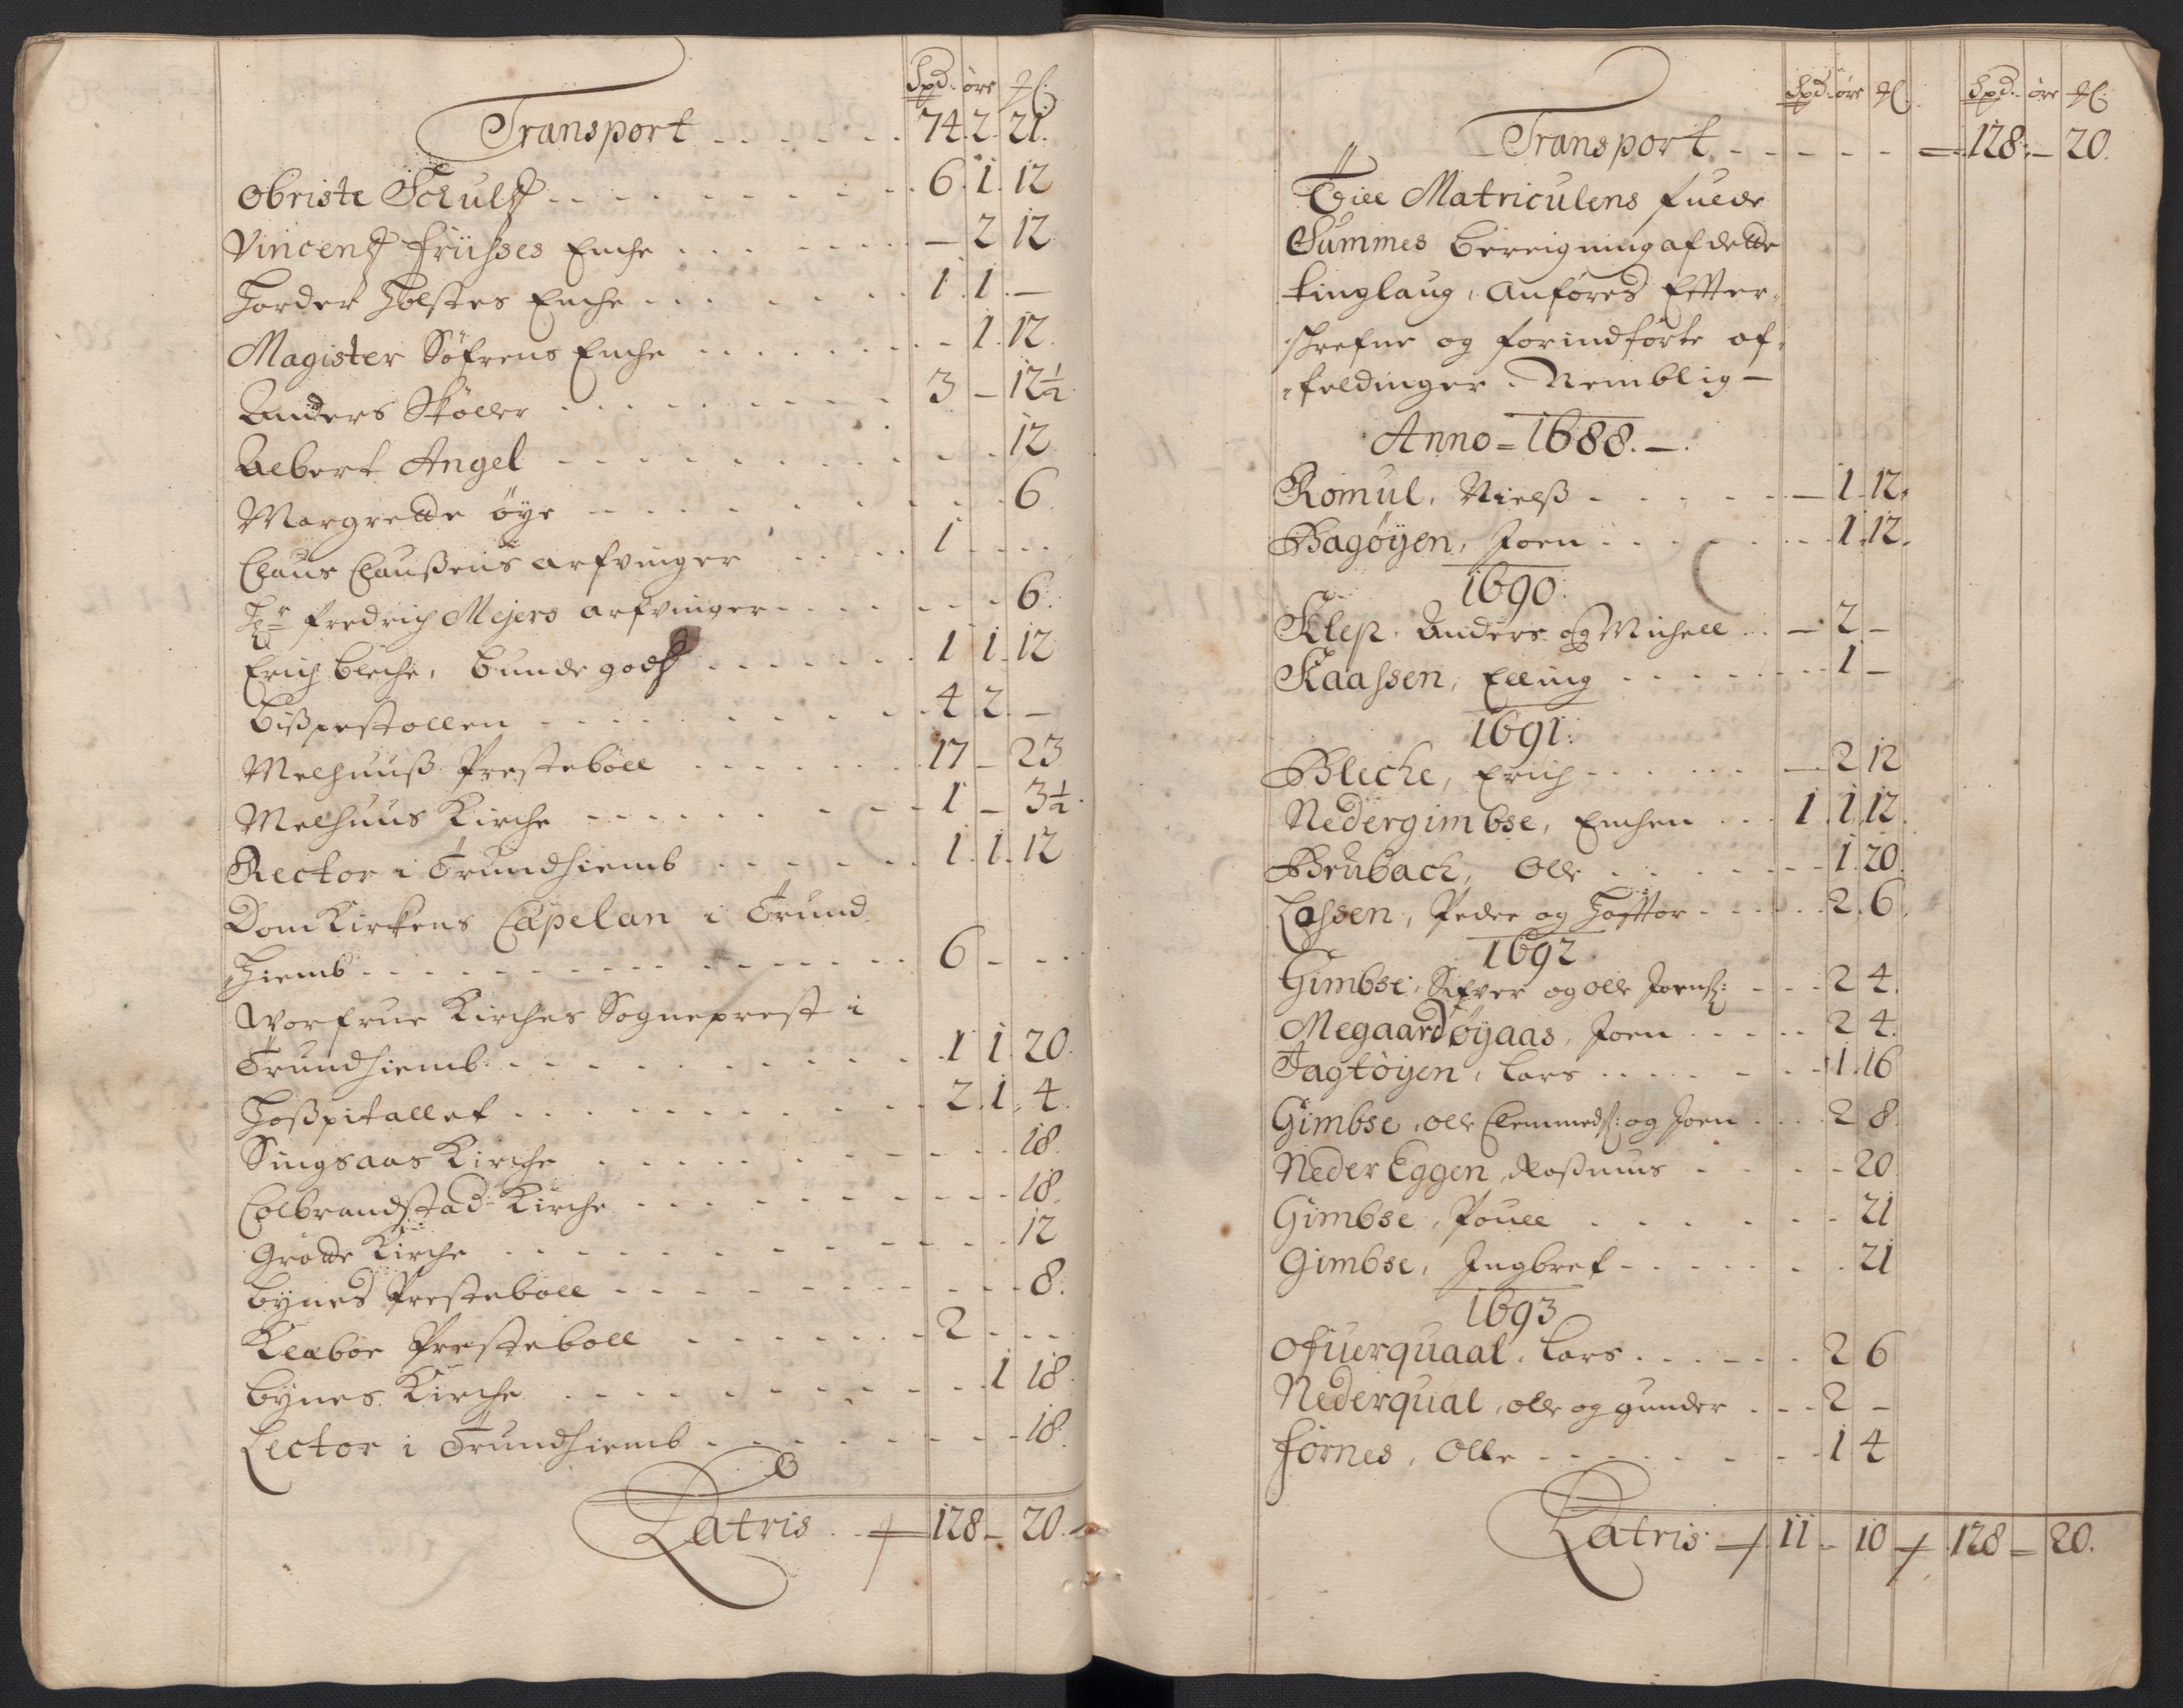 Spd. öre
Transport 74. 2. 21.
Obriste Schultz 6. 1. 12
Vincentz Früsses Enche — 2 12
Torder Holstes Enche 1. 1. —
Magister Söfrens Enche 1. 12.
Anders Sköller 3 — 12½
Albert Angel 12
Margrette öye 6.
Claus Claußens arfvinger 1
Hr: fredrich Mejers arfvinger 6.
Erich bleche, bunde godtz 1 1. 12
bißpestollen 4. 2. —
Melhuuß Prestebóll 17 — 23
Melhuus Kirche 1 — 3½
Rector i Trundhiemb 1. 1. 12
DomKirkens Capelan i Trund
hiemb 6 —
Worfrue Kirches Sogneprest i
Trundhiemb 1 1. 20.
Hoßpitallet 2. 1. 4.
Singsaas Kirche 18.
Colbrandstad Kirche 18.
Grötte Kirche 12
bÿnes Presteboll 8.
Klæboe Presteboll 2
bÿnes Kirche 1 18.
Lector i Trundhiemb 18.
Latris 128 — 20.
Spd. öre Spd. öre
Transport 128. — 20.
Till Matriculens fulde
Summes bereigning af dette
tinglaug, anföres Efter-
skrefne og forindförte af-
feldinger. Nemblig —
Anno = 1688. —.
Romul, Nielß — 1. 12.
Bagöyen, Joen 1. 12.
1690.
Klep, Anders og Michell — 2 —
Kaassen, Elling 1 —
1691.
Bleche, Erich — 2 12
Nedergimbse, Enchen 1. 1. 12.
Brubach, Olle 1. 20.
Lassen, Peder og 2. 6.
1692.
Gimbse, Sifver og olle Joens: 2 4.
Megaard öyaas, Joen 2 4.
Jagtöyen, Lars 1. 16
Gimbse, olle Clemmeds: og Joen 2 8.
Neder Eggen, Raßmus 20.
Gimbse, Pouell 21
Gimbse, Ingbret 21
1693
Ofuerquaal, Lars 2 6
Nederqual, olle og gunder 2 —
fornes, Olle 1 4
Latris 11 — 10 128 — 20.